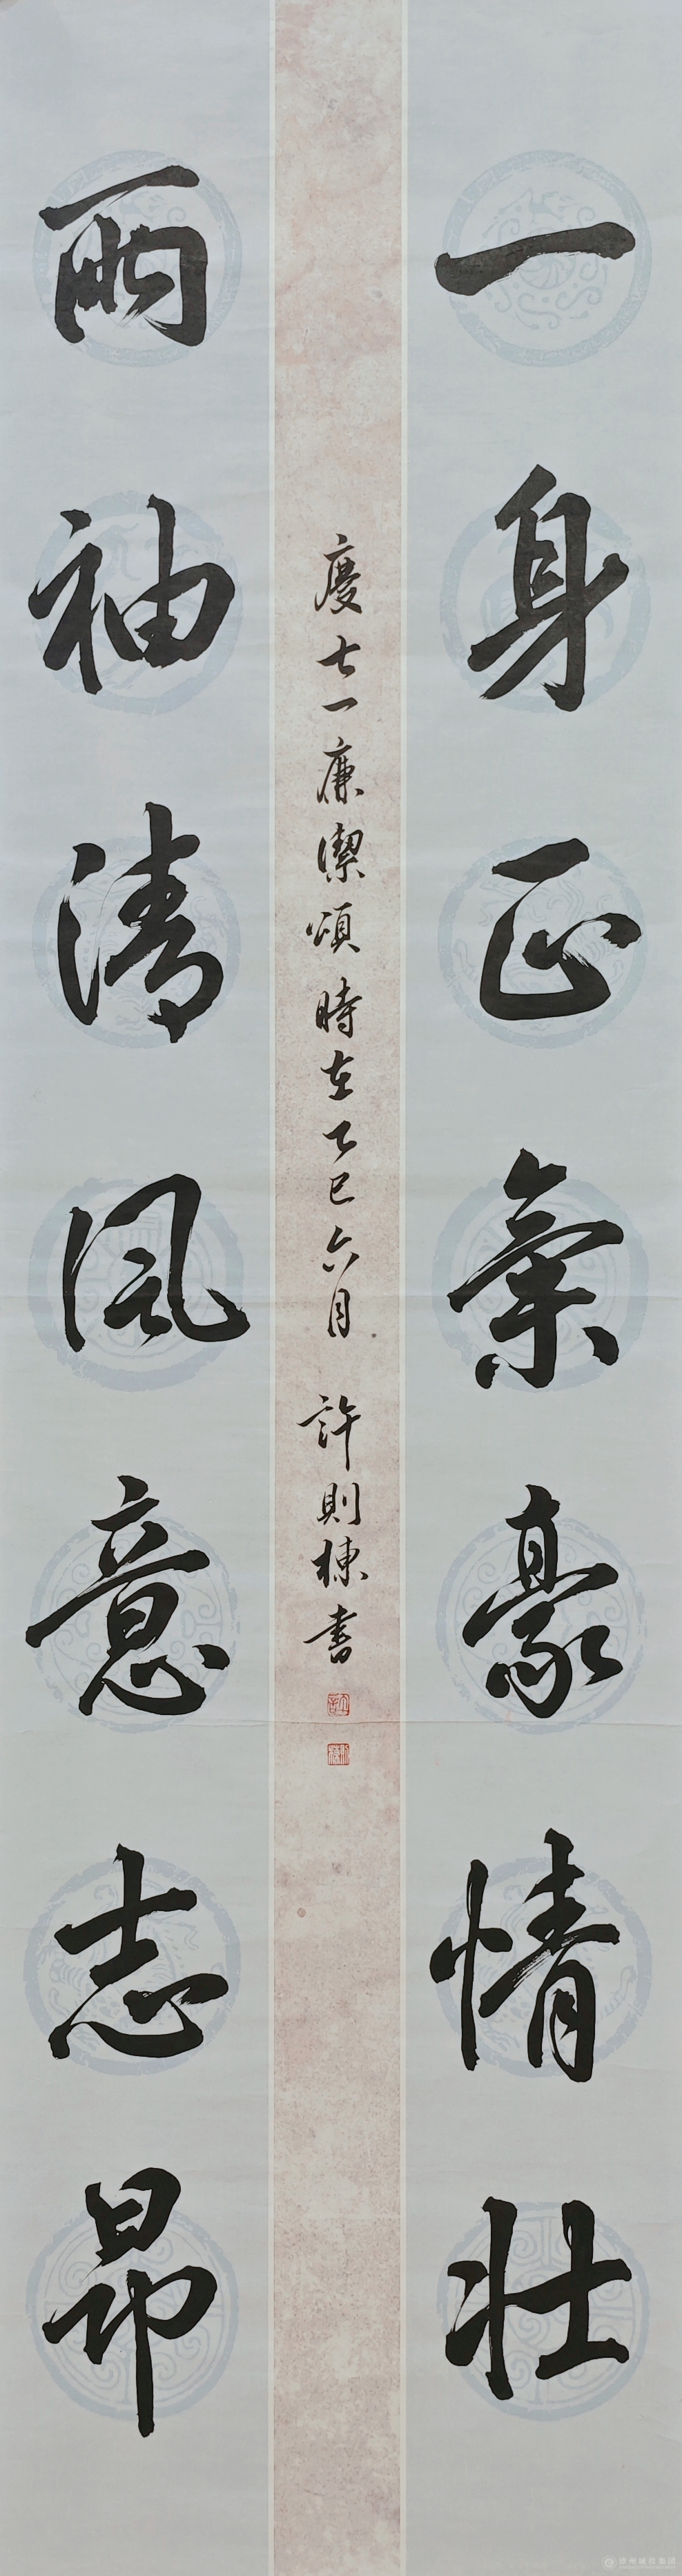 一身正氣豪情壯
兩袖清風意志昂
慶七一廉潔頌時在乙巳六月 許則棟書